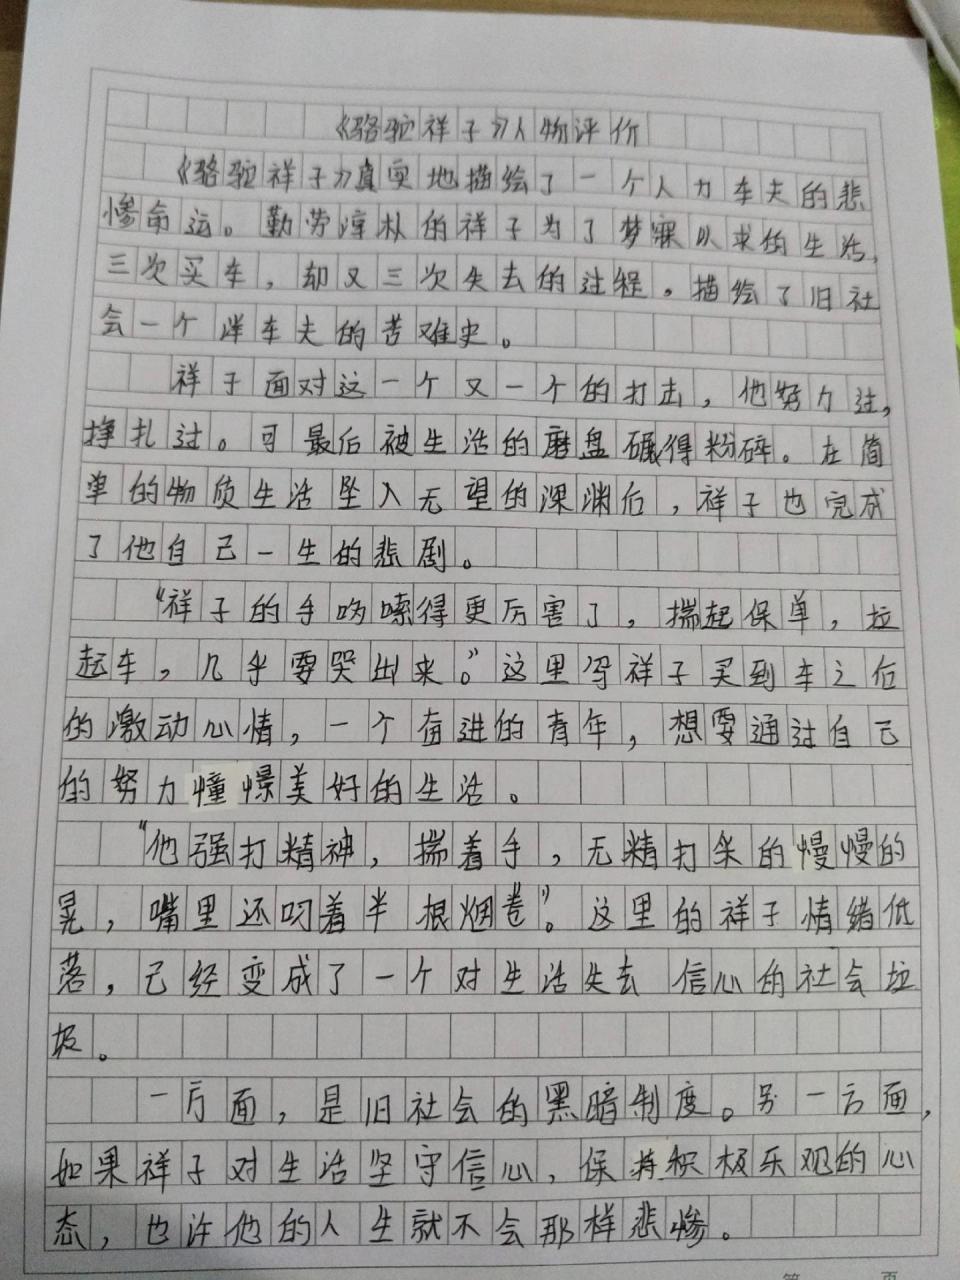 《骆驼祥子》人物评价
《骆驼祥子》真实地描绘了一个人力车夫的悲
惨命运。勤劳淳朴的祥子为了梦寐以求的生活，
三次买车，却又三次失去的过程。描绘了旧社
会一个洋车夫的苦难史。
祥子面对这一个又一个的打击，他努力过，
挣扎过。可最后被生活的磨盘碾得粉碎。在简
单的物质生活坠入无望的深渊后，祥子也完成
了他自己一生的悲剧。
“祥子的手哆嗦得更厉害了，揣起保单，拉
起车，几乎要哭出来。”这里写祥子买到车之后
的激动心情，一个奋进的青年，想要通过自己
的努力憧憬美好的生活。
“他强打精神，揣着手，无精打采的慢慢的
晃，嘴里还叼着半根烟卷”。这里的祥子情绪低
落，已经变成了一个对生活失去信心的社会垃
圾。
一方面，是旧社会的黑暗制度。另一方面，
如果祥子对生活坚守信心，保持积极乐观的心
态，也许他的人生就不会那样悲惨。
第 页